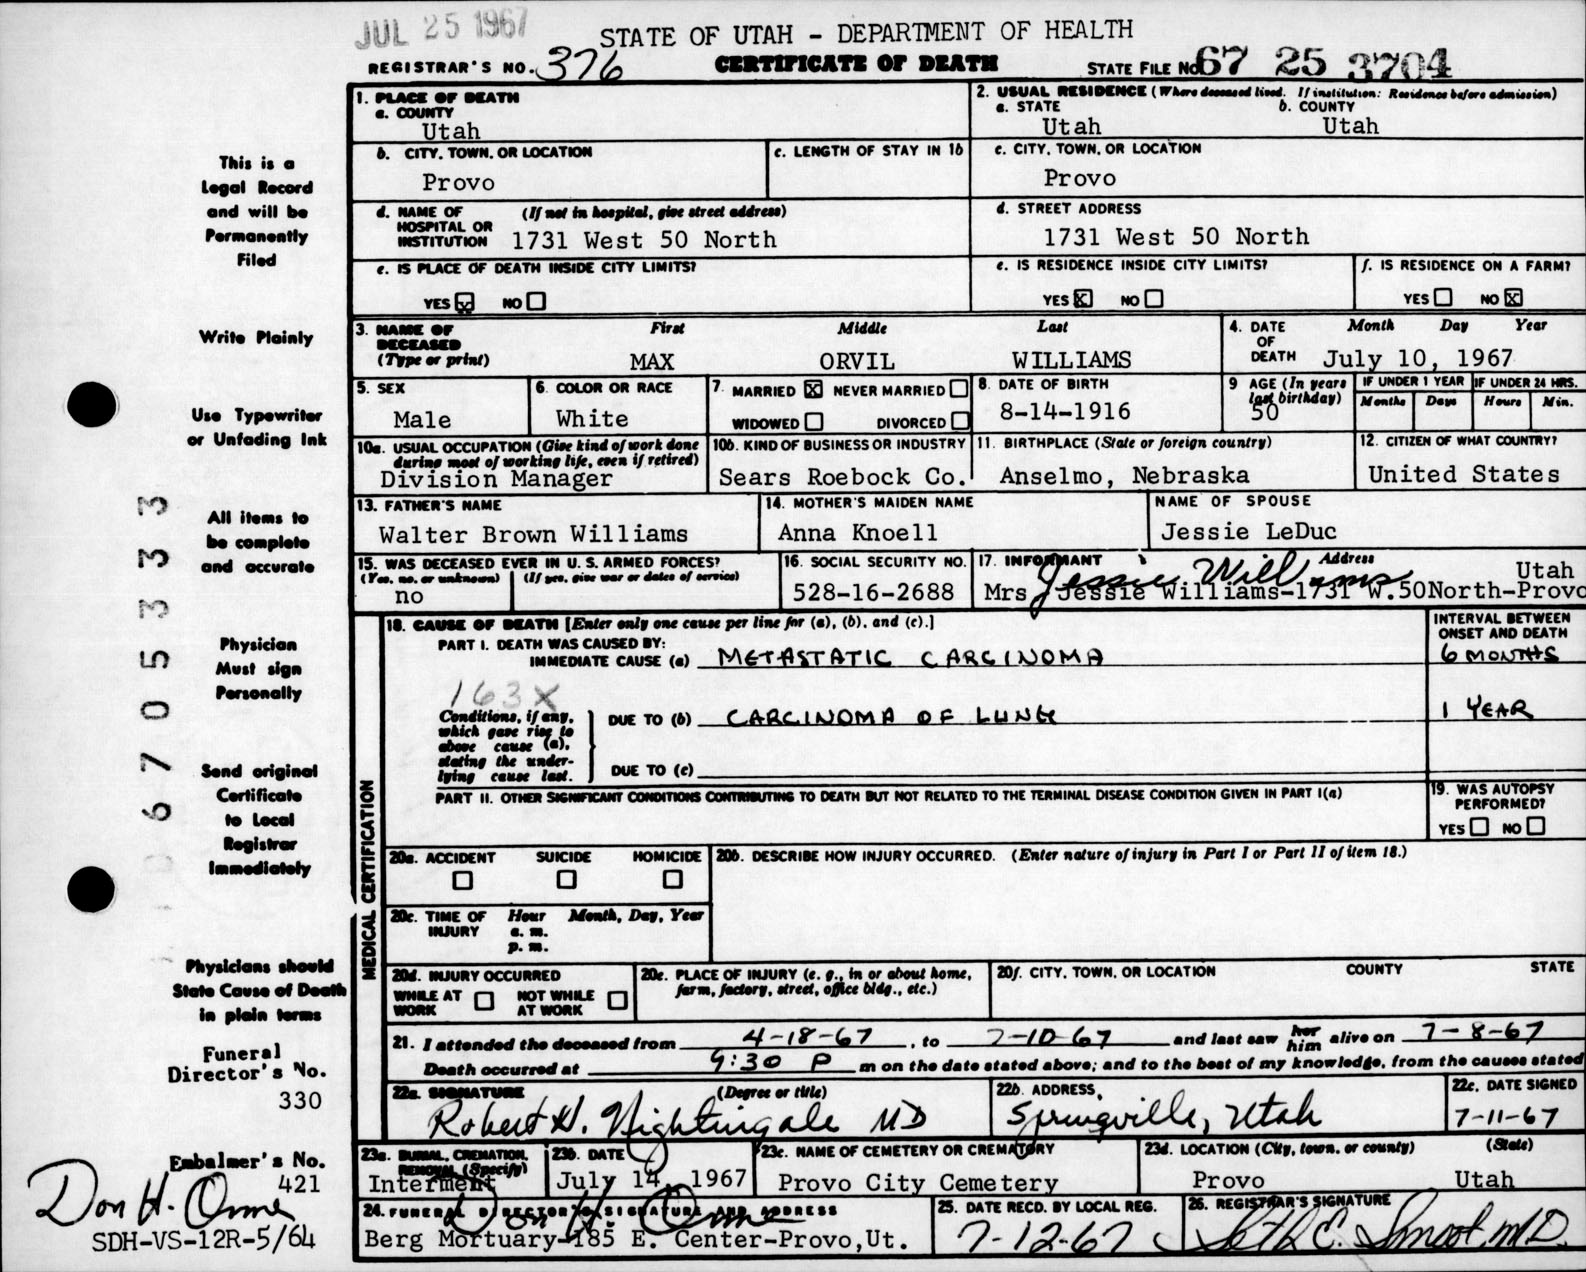 JUL 25 1967
STATE OF UTAH - DEPARTMENT OF HEALTH
REGISTRAR'S NO. 376 CERTIFICATE OF DEATH STATE FILE NO. 67 25 3704
This is a
Legal Record
and will be
Permanently
Filed
Write Plainly
Use Typewriter
or Unfading Ink
All items to
be complete
and accurate
Physician
Must sign
Personally
Send original
Certificate
to Local
Registrar
Immediately
Physicians should
State Cause of Death
in plain terms
Funeral
Director's No.
330
Embalmer's No.
421
Don H. Orme
SDH-VS-12R-5/64
67053333
1. PLACE OF DEATH
a. COUNTY
Utah
2. USUAL RESIDENCE (Where deceased lived. If institution: Residence before admission)
a. STATE b. COUNTY
Utah Utah
b. CITY, TOWN, OR LOCATION
Provo
c. LENGTH OF STAY IN 1b
c. CITY, TOWN, OR LOCATION
Provo
d. NAME OF (If not in hospital, give street address)
HOSPITAL OR
INSTITUTION 1731 West 50 North
d. STREET ADDRESS
1731 West 50 North
e. IS PLACE OF DEATH INSIDE CITY LIMITS?
YES X NO
e. IS RESIDENCE INSIDE CITY LIMITS?
YES X NO
f. IS RESIDENCE ON A FARM?
YES NO X
3. NAME OF First Middle Last
DECEASED
(Type or print) MAX ORVIL WILLIAMS
4. DATE Month Day Year
OF
DEATH July 10, 1967
5. SEX
Male
6. COLOR OR RACE
White
7. MARRIED X NEVER MARRIED
WIDOWED DIVORCED
8. DATE OF BIRTH
8-14-1916
9 AGE (In years
last birthday)
50
IF UNDER 1 YEAR IF UNDER 24 HRS.
Months Days Hours Min.
10a. USUAL OCCUPATION (Give kind of work done
during most of working life, even if retired)
Division Manager
10b. KIND OF BUSINESS OR INDUSTRY
Sears Roebock Co.
11. BIRTHPLACE (State or foreign country)
Anselmo, Nebraska
12. CITIZEN OF WHAT COUNTRY?
United States
13. FATHER'S NAME
Walter Brown Williams
14. MOTHER'S MAIDEN NAME
Anna Knoell
NAME OF SPOUSE
Jessie LeDuc
15. WAS DECEASED EVER IN U. S. ARMED FORCES?
(Yes, no, or unknown) (If yes, give war or dates of service)
no
16. SOCIAL SECURITY NO.
528-16-2688
17. INFORMANT Address
Jessie Williams
Utah
Mrs Jessie Williams-1731 W.50North-Provo
MEDICAL CERTIFICATION
18. CAUSE OF DEATH [Enter only one cause per line for (a), (b), and (c).]
INTERVAL BETWEEN
ONSET AND DEATH
PART I. DEATH WAS CAUSED BY:
IMMEDIATE CAUSE (a) METASTATIC CARCINOMA 6 MONTHS
163X
Conditions, if any,
which gave rise to
above cause (a),
stating the under-
lying cause last.
DUE TO (b) CARCINOMA OF LUNG 1 YEAR
DUE TO (c)
PART II. OTHER SIGNIFICANT CONDITIONS CONTRIBUTING TO DEATH BUT NOT RELATED TO THE TERMINAL DISEASE CONDITION GIVEN IN PART I(a)
19. WAS AUTOPSY
PERFORMED?
YES NO
20a. ACCIDENT SUICIDE HOMICIDE
20b. DESCRIBE HOW INJURY OCCURRED. (Enter nature of injury in Part I or Part II of item 18.)
20c. TIME OF Hour Month, Day, Year
INJURY a. m.
p. m.
20d. INJURY OCCURRED
WHILE AT NOT WHILE
WORK AT WORK
20e. PLACE OF INJURY (e. g., in or about home,
farm, factory, street, office bldg., etc.)
20f. CITY, TOWN, OR LOCATION COUNTY STATE
21. I attended the deceased from 4-18-67, to 7-10-67 and last saw her him alive on 7-8-67
Death occurred at 9:30 P m on the date stated above; and to the best of my knowledge, from the causes stated
22a. SIGNATURE (Degree or title)
Robert H. Nightingale MD
22b. ADDRESS
Springville, Utah
22c. DATE SIGNED
7-11-67
23a. BURIAL, CREMATION,
REMOVAL, (Specify)
Interment
23b. DATE
July 14, 1967
23c. NAME OF CEMETERY OR CREMATORY
Provo City Cemetery
23d. LOCATION (City, town, or county) (State)
Provo Utah
24. FUNERAL DIRECTOR'S SIGNATURE AND ADDRESS
Don H. Orme
Berg Mortuary-185 E. Center-Provo,Ut.
25. DATE RECD. BY LOCAL REG.
7-12-67
26. REGISTRAR'S SIGNATURE
Seth E. Smoot, M.D.